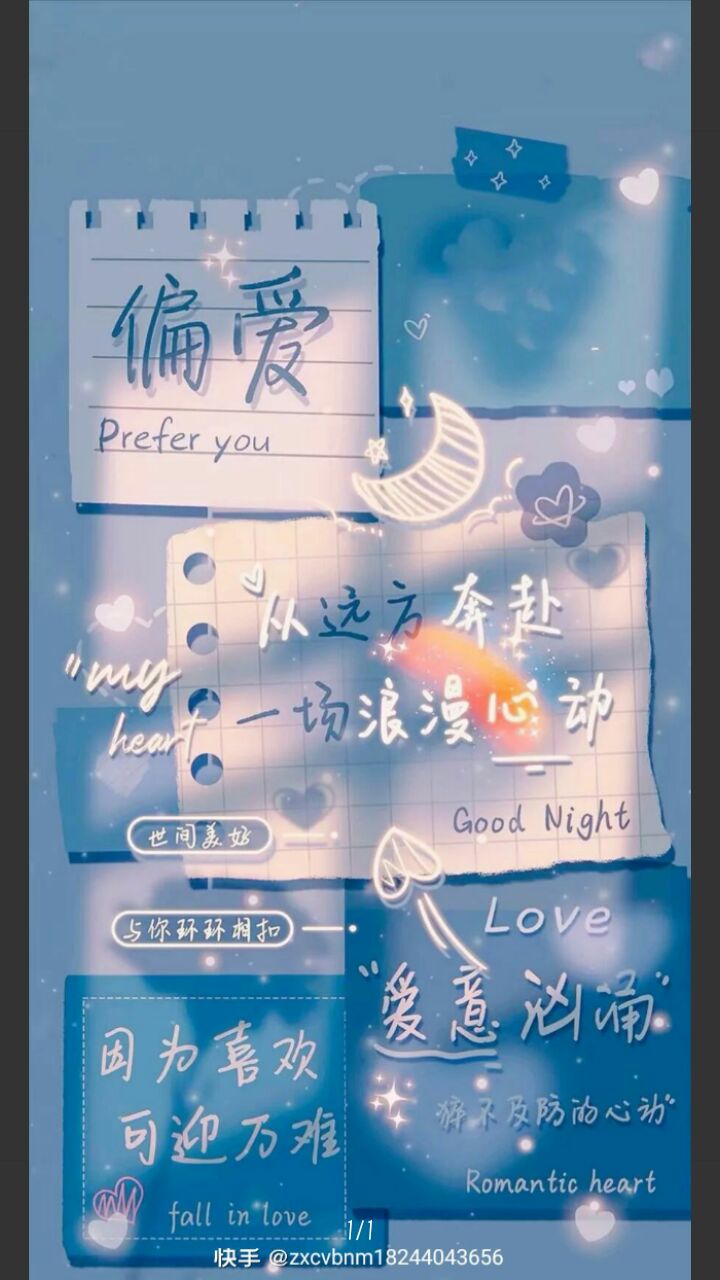 偏爱
Prefer you
“从远方奔赴
一场浪漫心动
"my
heart
Good Night
世间美好
与你环环相扣
Love
“爱意汹涌”
猝不及防的心动”
Romantic heart
因为喜欢
可迎万难
fall in love
1/1
快手 @zxcvbnm18244043656